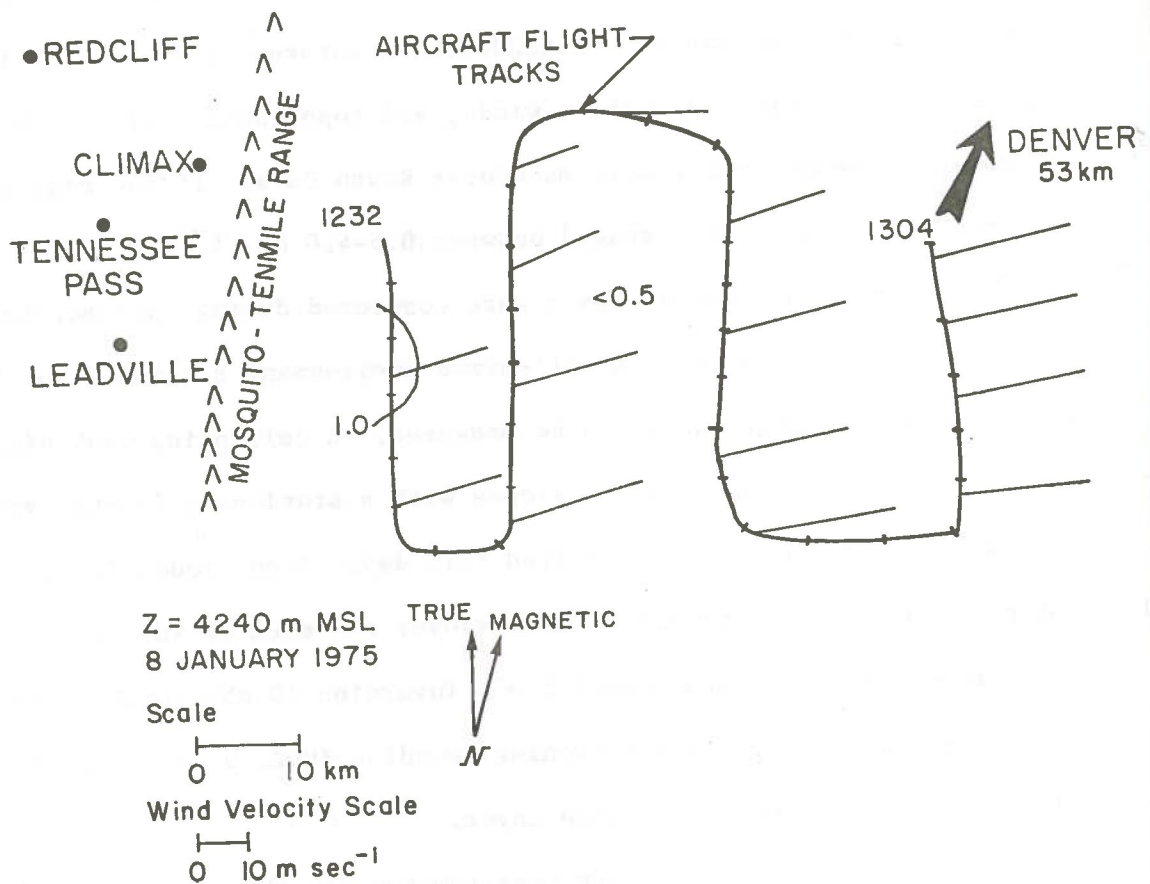 REDCLIFF
CLIMAX
TENNESSEE
PASS
LEADVILLE
MOSQUITO - TENMILE RANGE
AIRCRAFT FLIGHT
TRACKS
DENVER
53 km
1232
1304
<0.5
1.0
Z = 4240 m MSL
8 JANUARY 1975
TRUE
MAGNETIC
N
Scale
0 10 km
Wind Velocity Scale
0 10 m sec⁻¹